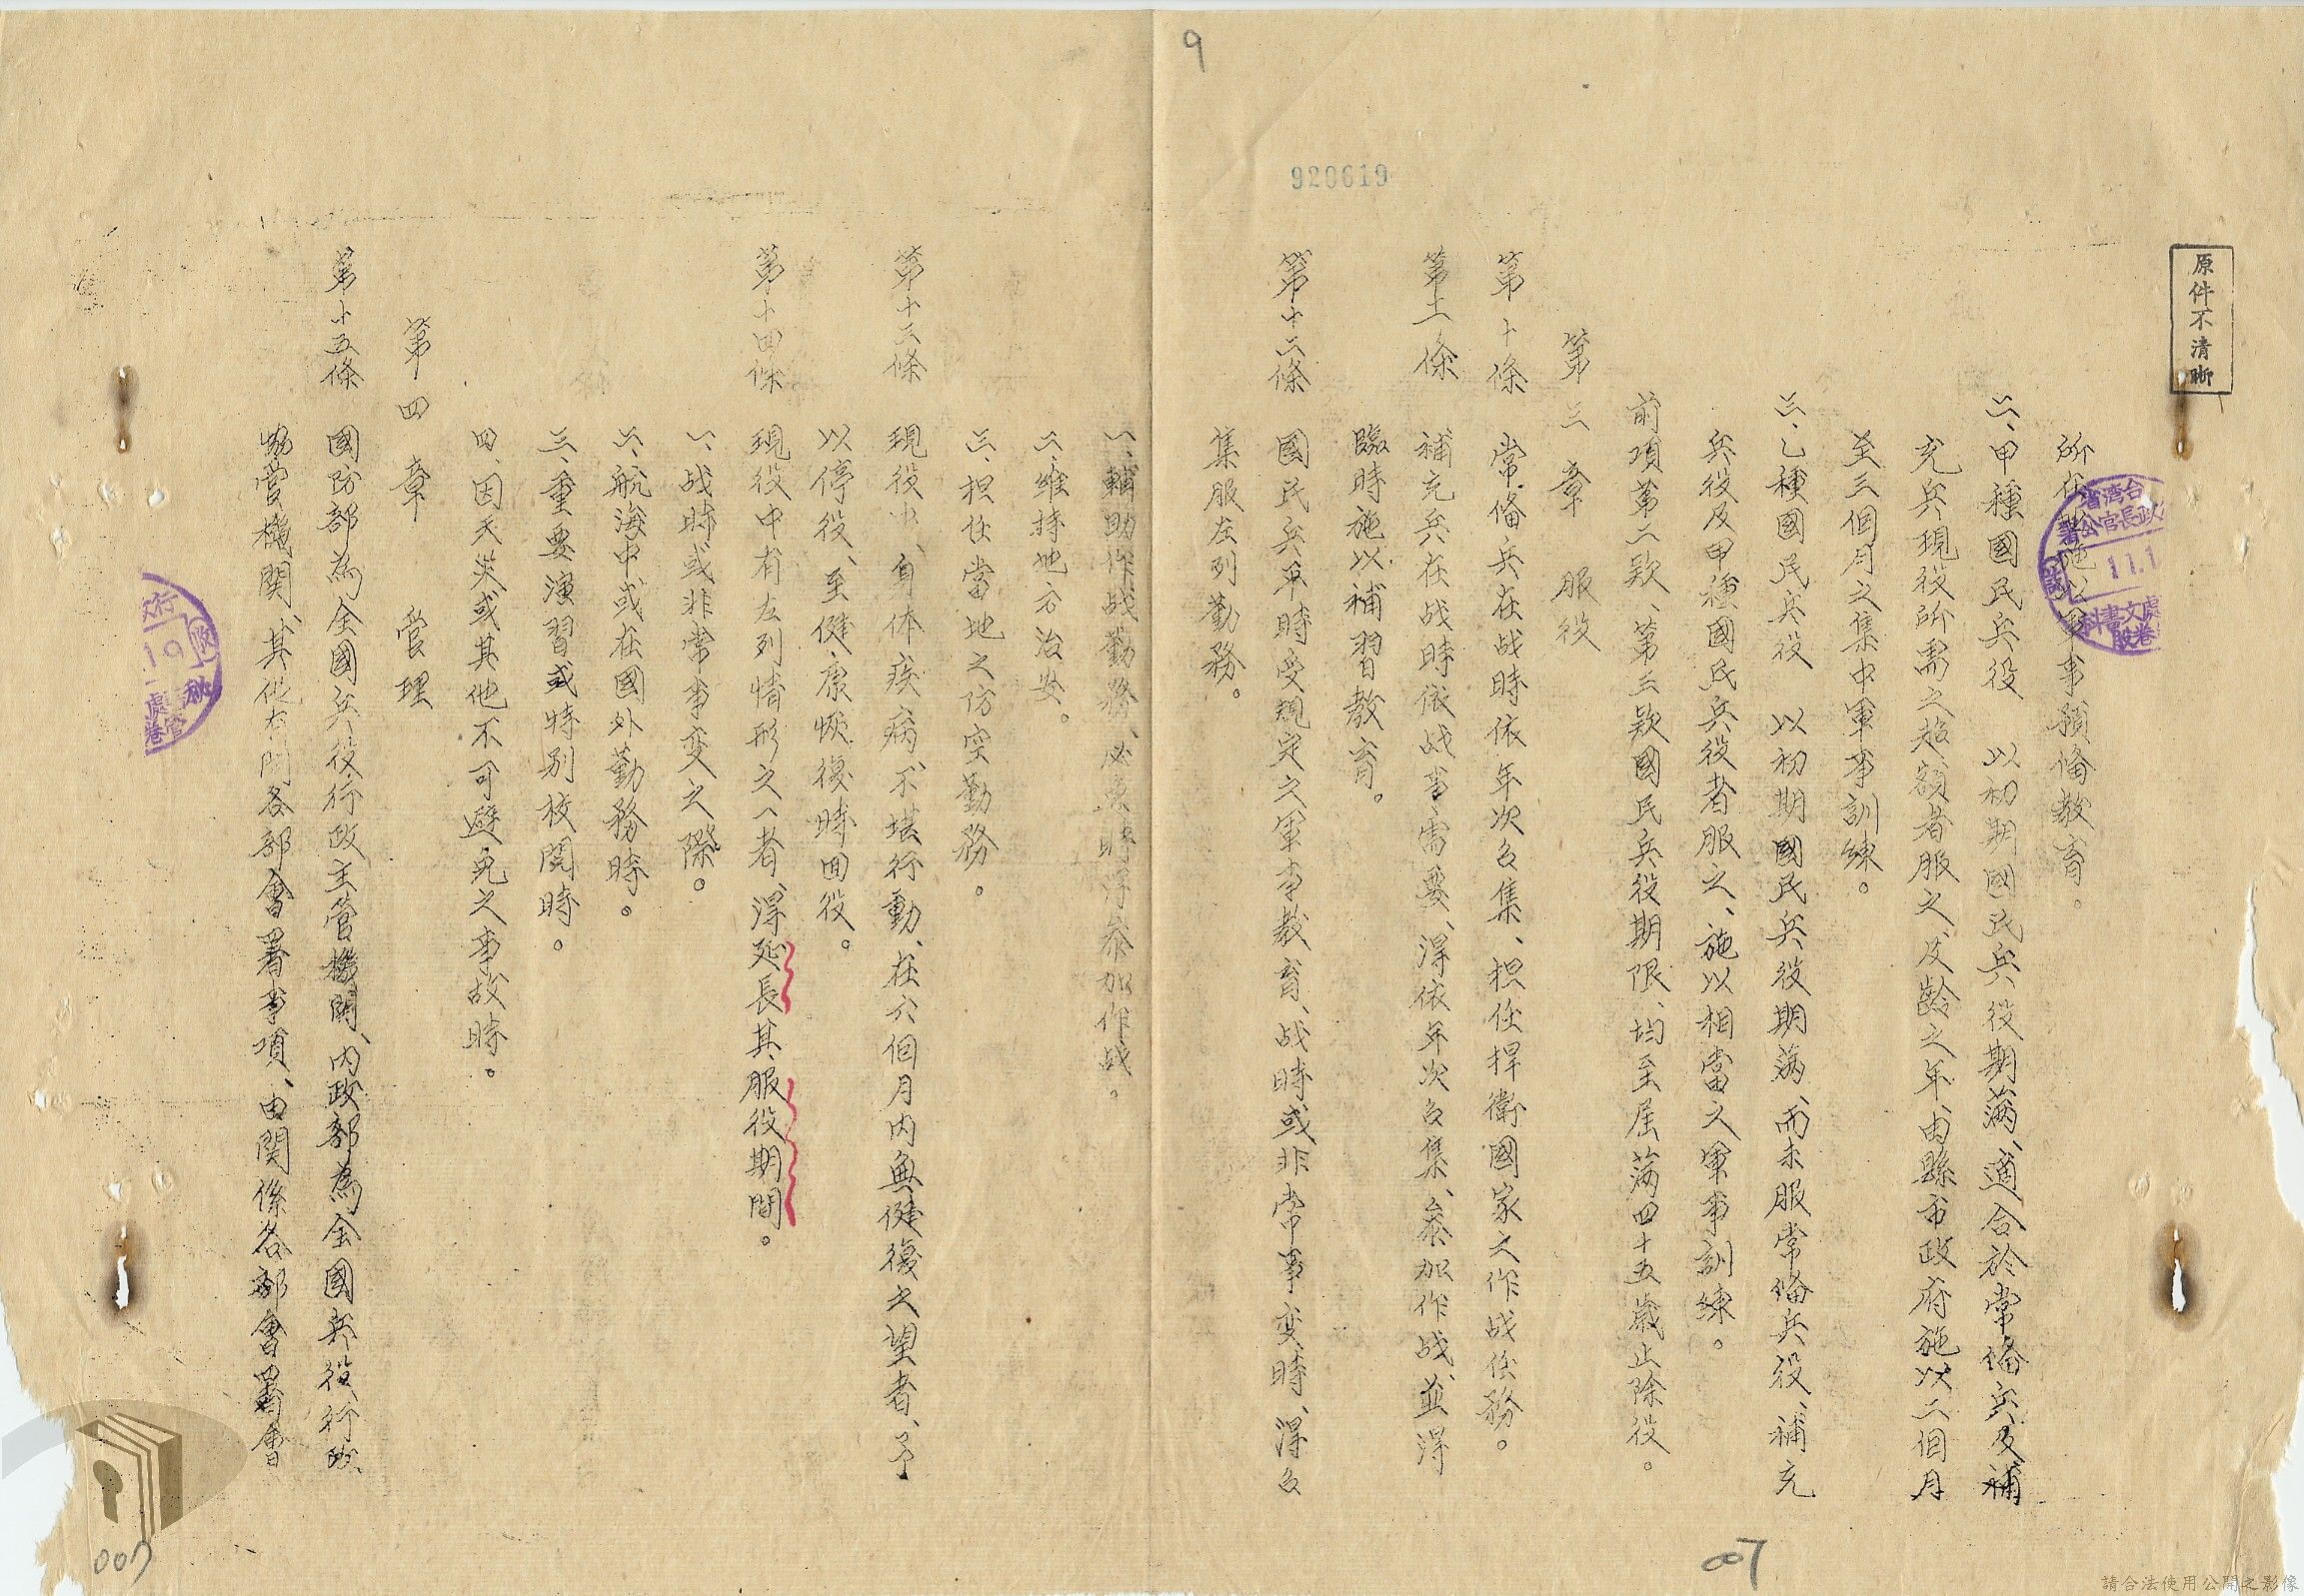 9
920619
原件不清晰
所在地施以軍事預俻教育。
二、甲種國民兵役 以初期國民兵役期满、適合於常俻兵及補
充兵現役所需之超額者服之、及齡之年、由縣市政府施以二個月
至三個月之集中軍事訓練。
三、乙種國民兵役 以初期國民兵役期满、而未服常俻兵役、補充
兵役及甲種國民兵役者服之、施以相當之軍事訓練。
前項第二欵、第三欵國民兵役期限、均至屆满四十五歲止除役。
第三章 服役
第十條 常俻兵在战時依年次召集、担任捍衛國家之作战任務。
第十一條 補充兵在战時依战事需要、得依年次召集、叅加作战、並得
臨時施以補習教育。
第十二條 國民兵平時受規定之軍事教育、战時或非常事变時、得召
集服左列勤務。
一、輔助作战勤務、必要時得叅加作战。
二、維持地方治安。
三、担任當地之防空勤務。
第十三條 現役中、身体疾病、不堪行動、在六個月内無健復之望者、予
以停役、至健康恢復時回役。
第十四條 現役中有左列情形之一者、得延長其服役期間。
一、战時或非常事变之際。
二、航海中或在國外勤務時。
三、重要演習或特别校閱時。
四、因天災或其他不可避免之事故時。
第四章 管理
第十五條 國防部為全國兵役行政主管機関、内政部為全國兵役行政
協管機関、其他有関各部會署事項、由関係各部會署會
台湾省
行政長官公署
11.1
處文書科
007
007
請合法使用公開之影像